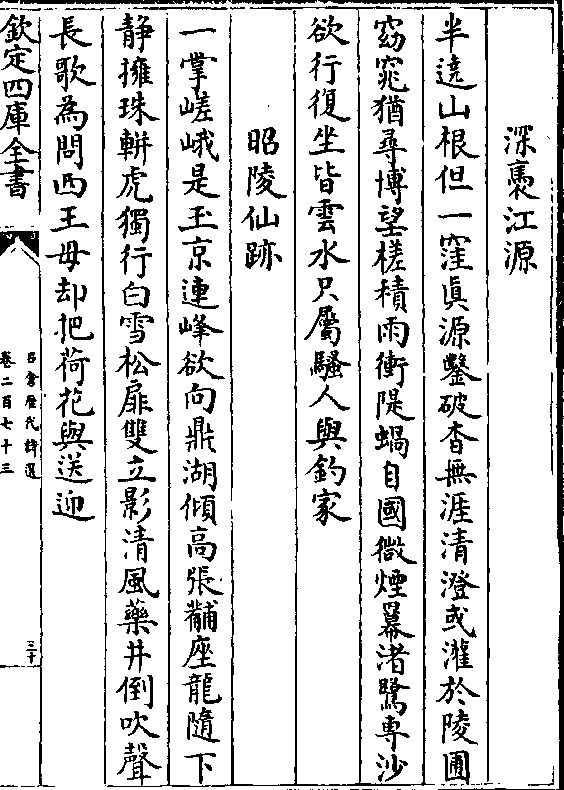 深褭江源
半遶山根但一窪真源鑿破杳無涯清澄或漼於陵圃
窈窕猶尋博望槎積雨衝隄蝸自國微煙羃渚鷺専沙
欲行復坐皆雲水只屬騷人與釣家
昭陵仙跡
一掌嵯峨是玉京連峰欲向鼎湖傾高張黼座龍隨下
静擁珠軿虎獨行白雪松扉雙立影清風藥井倒吹聲
長歌為問西王母却把荷花與送迎
欽定四庫全書
石倉歴代詩選
卷二百七十三
三十